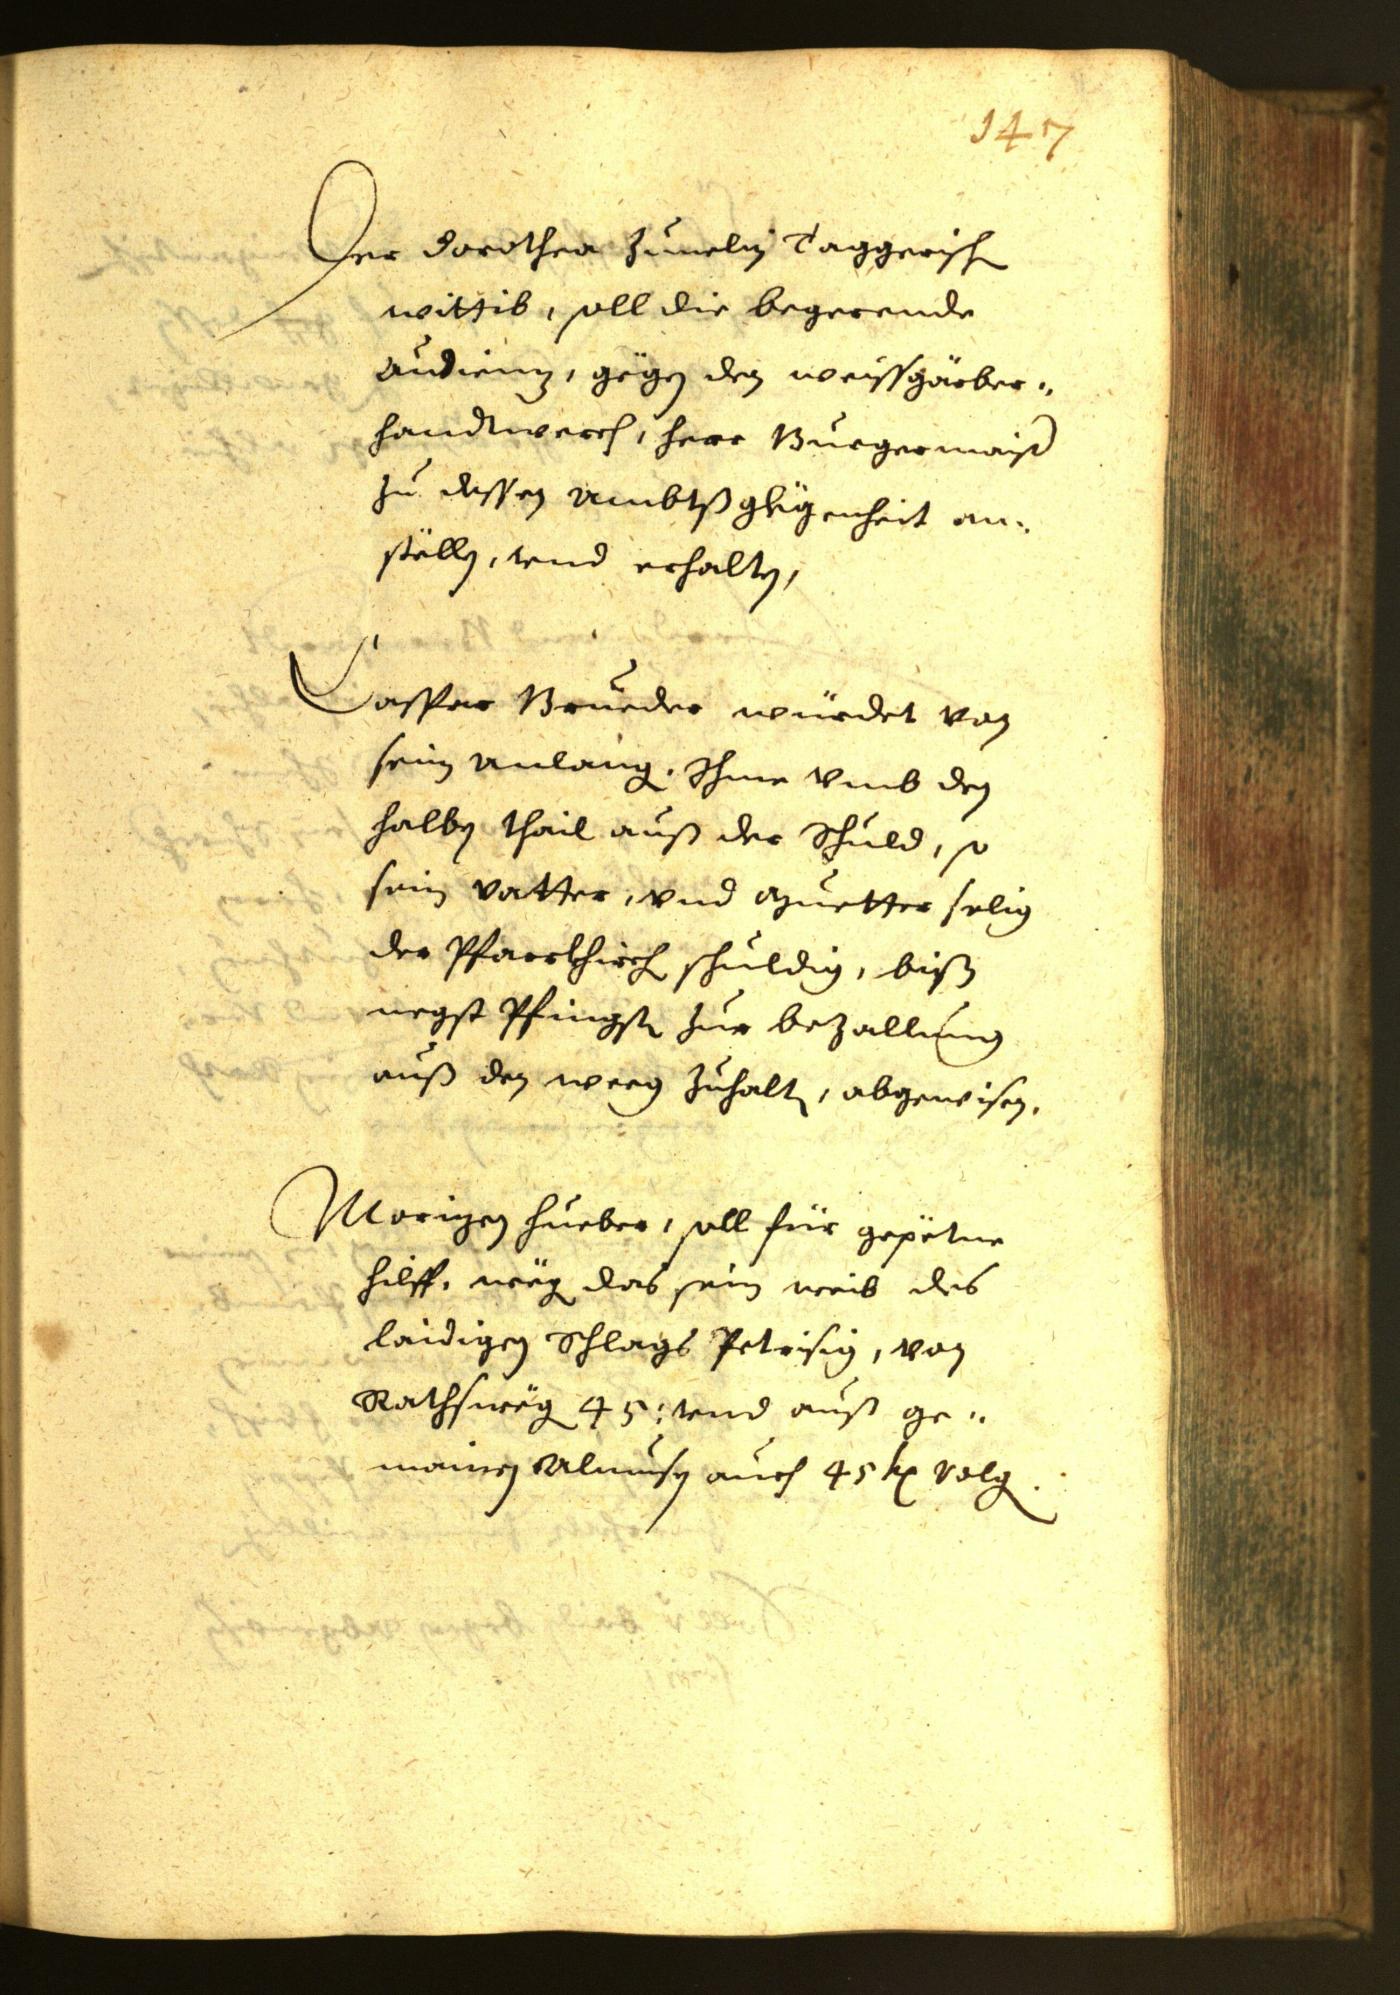 147
Der Dorothea Zimelin Taggerisch
wittib, soll die begerende
Audienz, gegen den weissgärber„
handtwerch, herr Burgermaister
zu dessen Ambtß glegenheit an„
stellen, vnd erhalten,
Casspar Brueder würdet von
sein anlang. Ihme vmb den
halben thail auß der Schuld, so
sein vatter, vnd Muetter selig
der Pfarrkhirch schuldig, biß
negst Pfingsten zur bezallung
auß den weeg zuhalten, abgewisen.
Morizen hueber, soll für gepetne
hilff, weg das sein weib des
laidigen Schlags Petrisig, von
Rathsweg 45: vnd auß ge„
mainen Almusen auch 45 kr volgen.